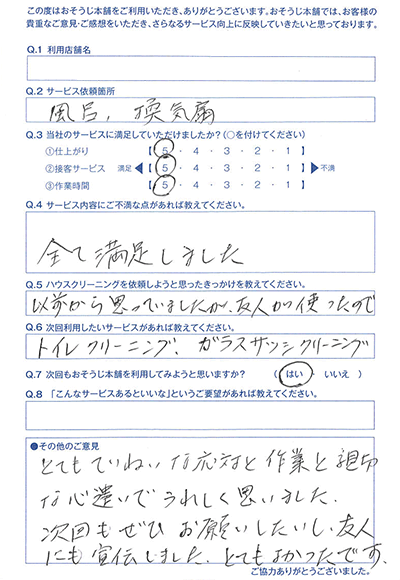 この度はおそうじ本舗をご利用いただき、ありがとうございます。おそうじ本舗では、お客様の
貴重なご意見・ご感想をいただき、さらなるサービス向上に反映していきたいと思っております。
Q.1 利用店舗名
Q.2 サービス依頼箇所
風呂, 換気扇
Q.3 当社のサービスに満足していただけましたか？（○を付けてください）
①仕上がり 【 5 ・ 4 ・ 3 ・ 2 ・ 1 】
②接客サービス 満足 ◀【 5 ・ 4 ・ 3 ・ 2 ・ 1 】▶ 不満
③作業時間 【 5 ・ 4 ・ 3 ・ 2 ・ 1 】
Q.4 サービス内容にご不満な点があれば教えてください。
全て満足しました
Q.5 ハウスクリーニングを依頼しようと思ったきっかけを教えてください。
以前から思っていましたが、友人が使ったので
Q.6 次回利用したいサービスがあれば教えてください。
トイレクリーニング、ガラスサッシクリーニング
Q.7 次回もおそうじ本舗を利用してみようと思いますか？ （ はい ・ いいえ ）
Q.8 「こんなサービスあるといいな」というご要望があれば教えてください。
●その他のご意見
とてもていねいな応対と作業と親切
な心遣いでうれしく思いました.
次回もぜひお願いしたいし、友人
にも宣伝しました. とてもよかったです.
ご協力ありがとうございました。